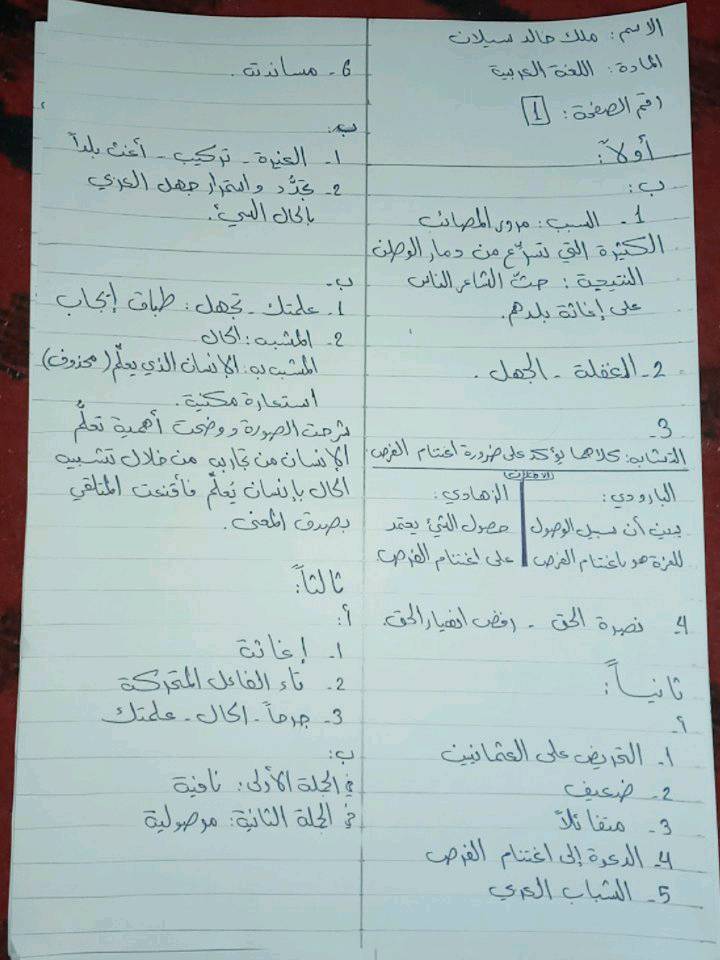 الاسم: ملك خالد سيلان
المادة: اللغة العربية
رقم الصفحة: 1
أولاً:
ب:
1- السبب: مرور المصائب
الكثيرة التي تسرّع من دمار الوطن
النتيجة: حثّ الشاعر الناس
على إغاثة بلدهم.
2- الغفلة - الجهل.
3-
التشابه: كلاهما يؤكد على ضرورة اغتنام الفرص
الاختلاف
البارودي:
يبين أن سبيل الوصول
للعزة هو باغتنام الفرص
الزهاوي:
حصول الشيء يعتمد
على اغتنام الفرص
4- نصرة الحق - رفض انهيار الحق.
ثانياً:
أ-
1- التحريض على العثمانيين
2- ضعيف
3- متفائلاً
4- الدعوة إلى اغتنام الفرص
5- الشباب العربي
6- مساندته.
ب:
1- الغيرة - تركيب - أغث بلداً
2- تجدّد واستمرار جهل العربي
بالحال السيء.
ب-
1- علمتك - تجهل: طباق إيجاب
2- المشبه: الحال
المشبه به: الإنسان الذي يعلّم (محذوف)
استعارة مكنية.
شرحت الصورة ووضحت أهمية تعلّم
الإنسان من تجاربه من خلال تشبيه
الحال بإنسان يُعلّم فأقنعت المتلقي
بصدق المعنى.
ثالثاً:
أ:
1- إغاثة
2- تاء الفاعل المتحركة
3- جرحاً - الحال - علمتك
ب:
في الجملة الأولى: نافية
في الجملة الثانية: موصولية